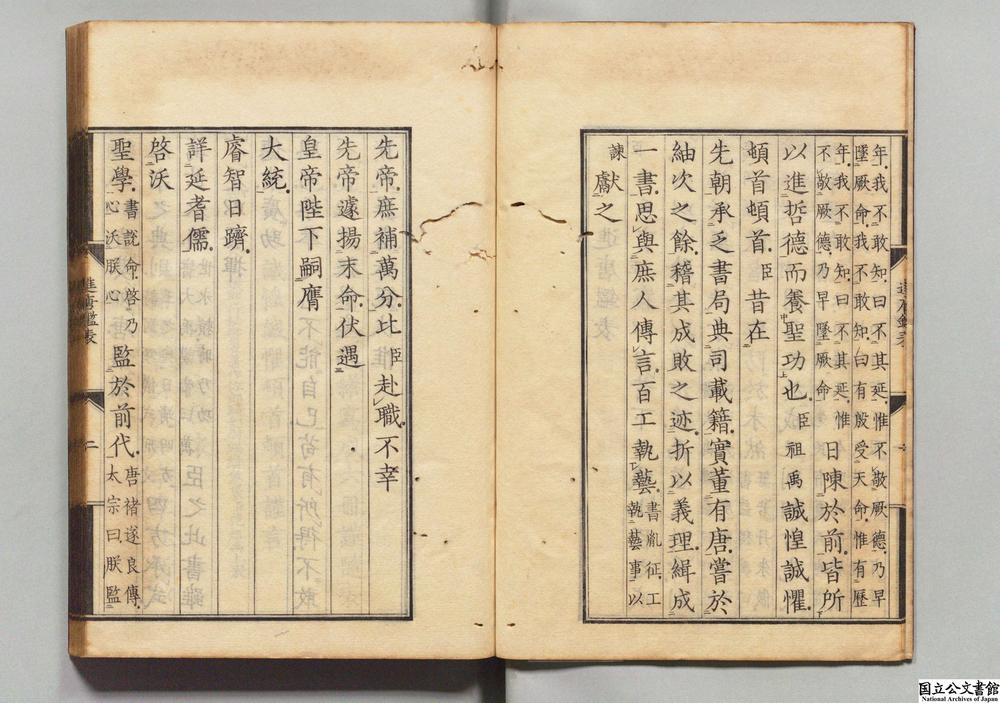 年我不敢知曰不其延惟不敬厥德乃早
墜厥命我不敢知曰有殷受天命惟有歷
年我不敢知曰不其延惟
不敬厥德乃早墜厥命
日陳於前皆所
以進哲德而養聖功也臣祖禹誠惶誠懼
頓首頓首臣昔在
先朝承乏書局典司載籍實董有唐嘗於
紬次之餘稽其成敗之迹折以義理緝成
一書思與庶人傳言百工執藝書胤征工
執藝事以
諫
獻之
先帝庶補萬分比臣赴職不幸
先帝遽揚末命伏遇
皇帝陛下嗣膺
大統
睿智日躋
詳延耆儒
啓沃
聖學書説命啓乃
心沃朕心
監於前代唐褚遂良傳
太宗曰朕監
進唐鑑表
二
国立公文書館
National Archives of Japan